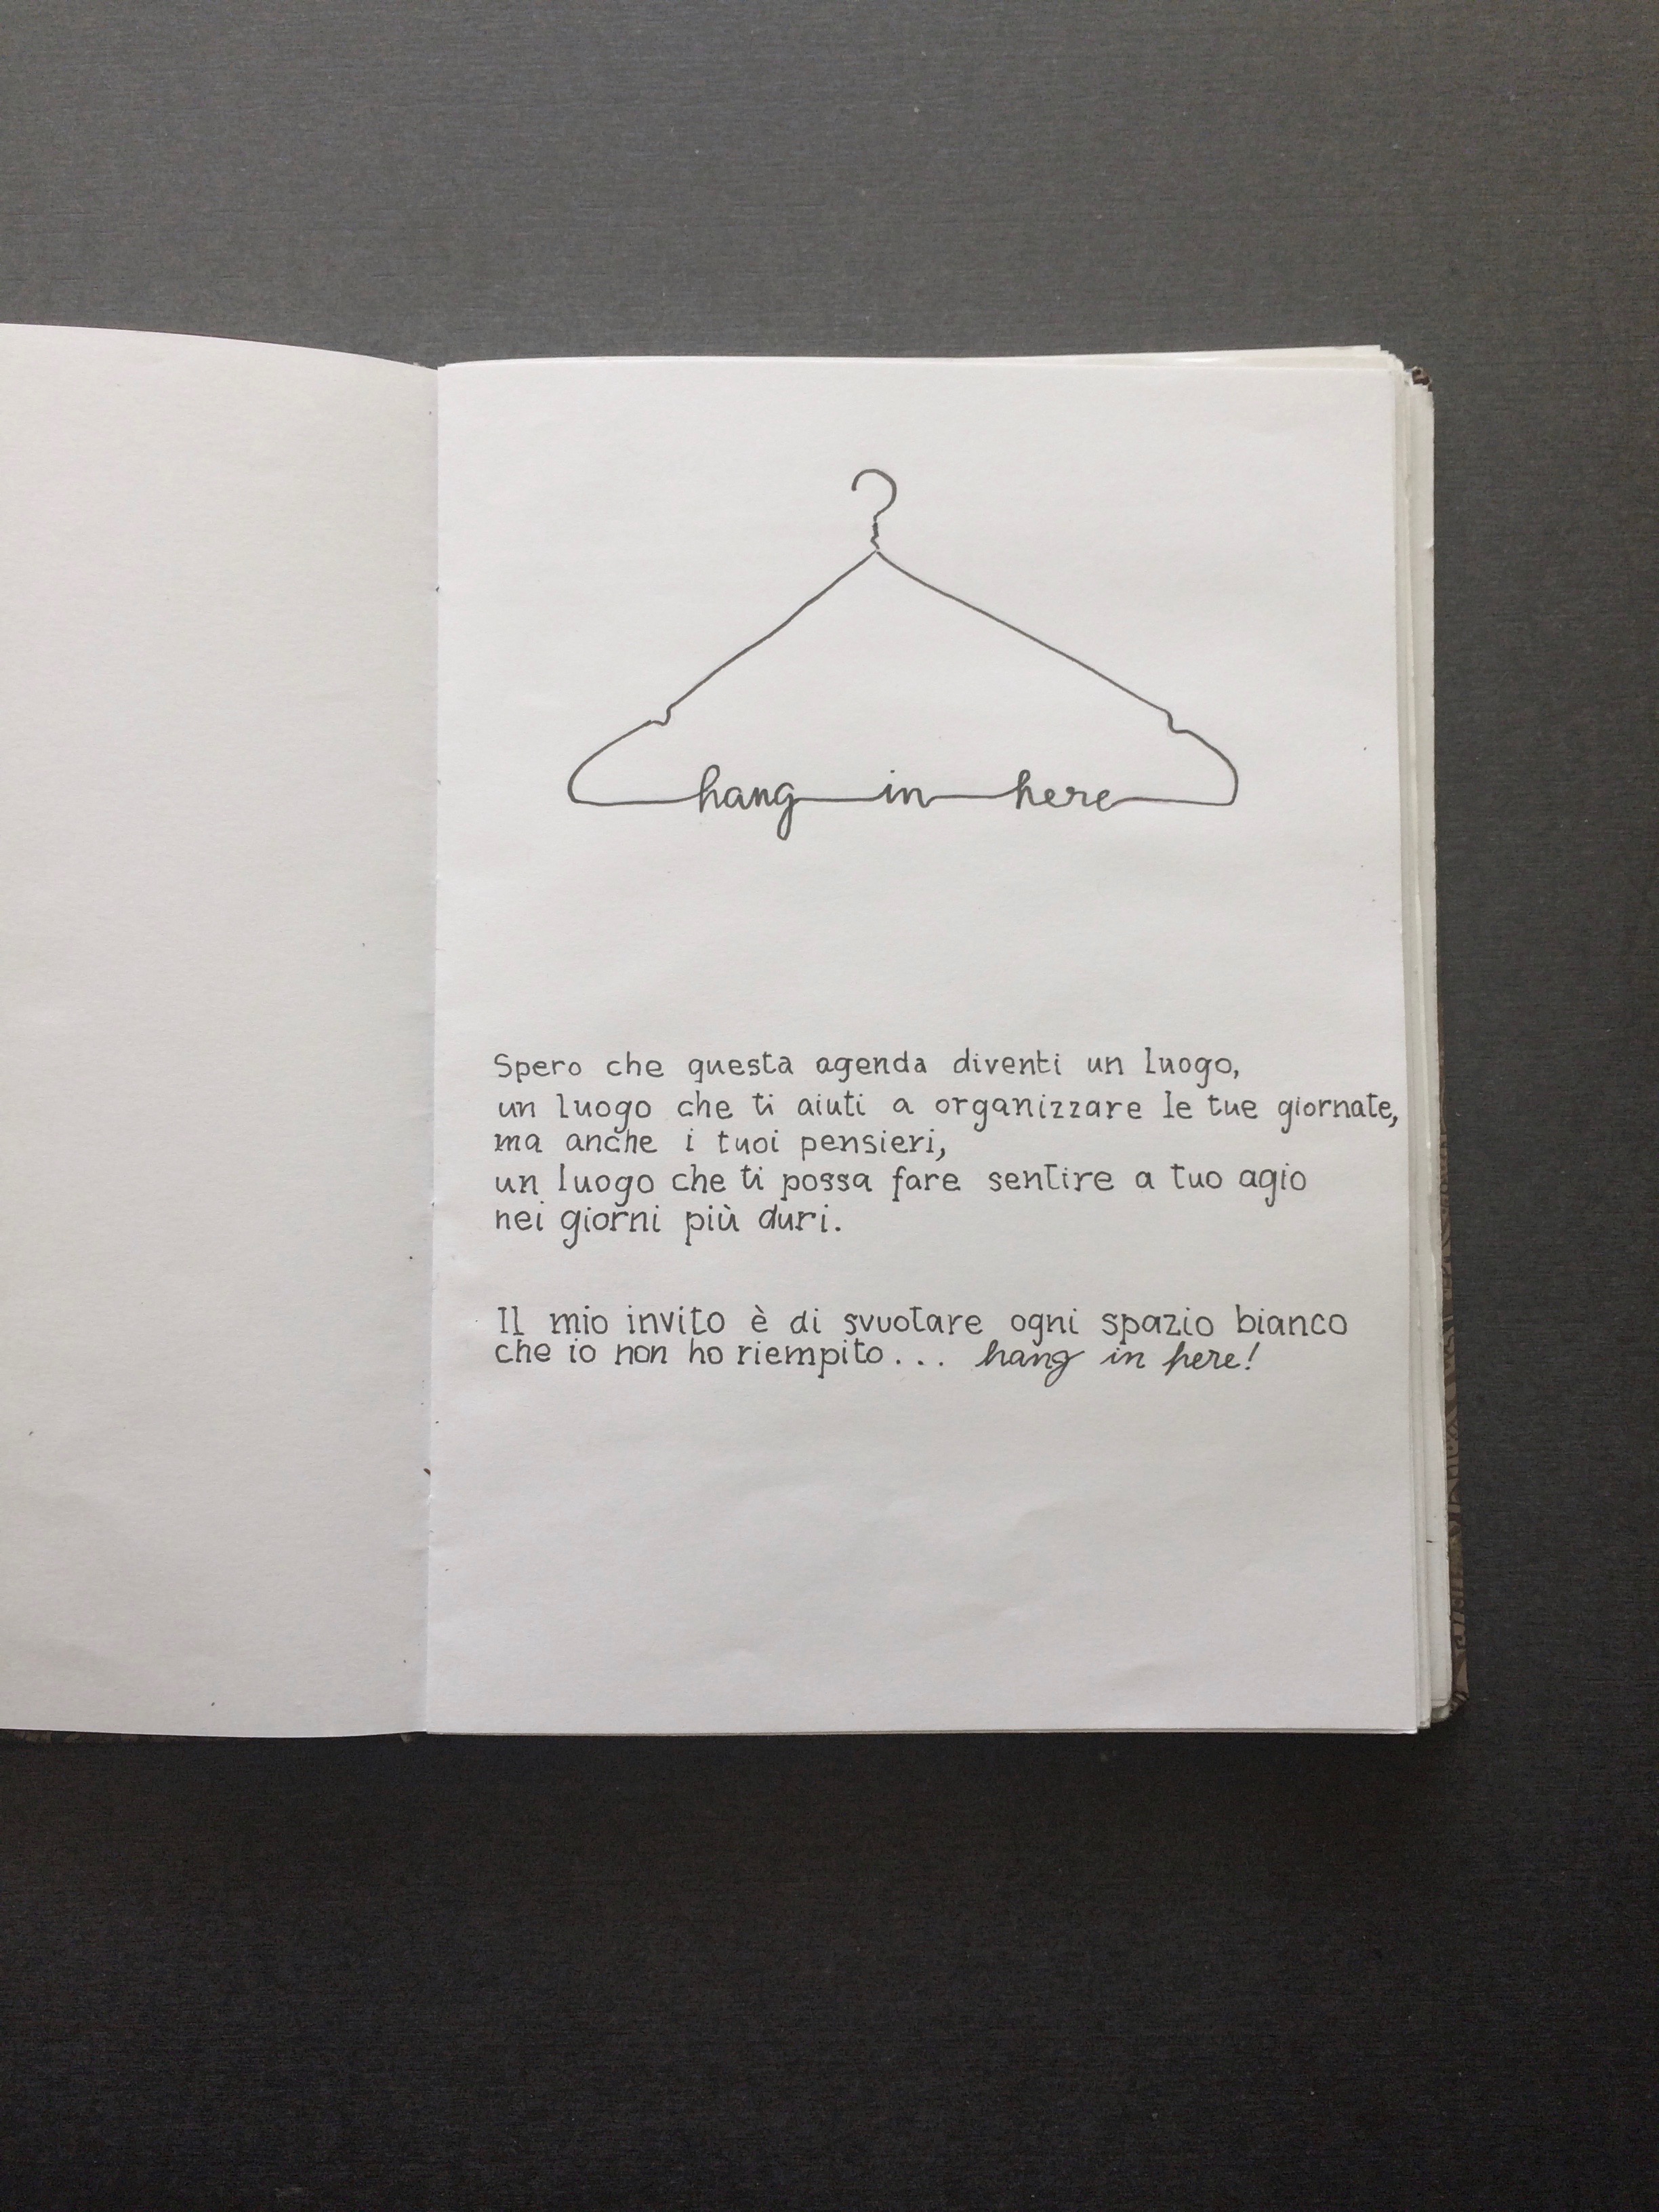 hang in here
Spero che questa agenda diventi un luogo,
un luogo che ti aiuti a organizzare le tue giornate,
ma anche i tuoi pensieri,
un luogo che ti possa fare sentire a tuo agio
nei giorni più duri.
Il mio invito è di svuotare ogni spazio bianco
che io non ho riempito... hang in here!